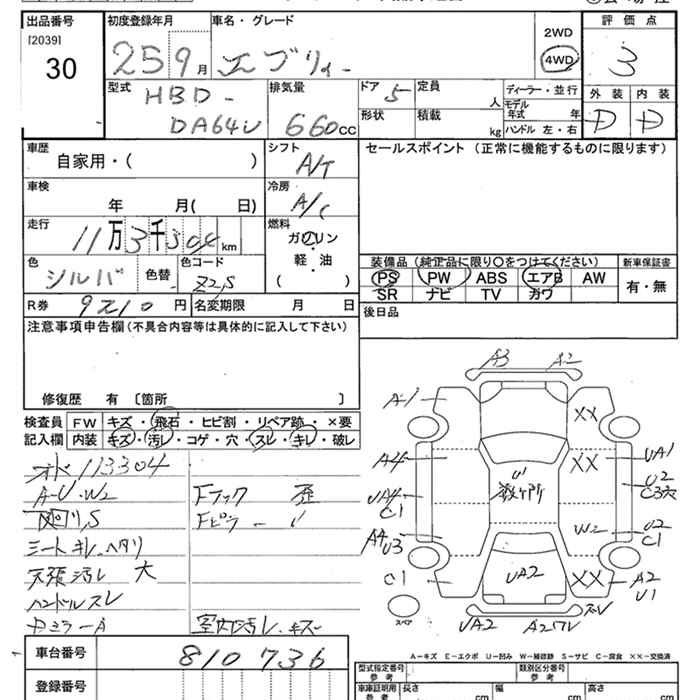 出品番号 初度登録年月 車名・グレード 2WD 評価点
[2039]
30 25 9月 エブリイ 4WD 3
型式 HBD- 排気量 ドア 5 定員 人 ディーラー・並行 外装 内装
DA64V 660cc 形状 積載 kg モデル年式 年 D D
ハンドル 左・右
車歴 シフト セールスポイント (正常に機能するものに限ります)
自家用・( ) A/T
車検 冷房
年 月( 日) A/C
走行 燃料
11万3千304km ガソリン
・
軽・油
( )
色 シルバ 色替 色コード Z2S
装備品(純正品に限り○をつけてください) 新車保証書
PS PW ABS エアB AW 有・無
SR ナビ TV カワ
R券 9210円 名変期限 月 日 後日品
注意事項申告欄(不具合内容等は具体的に記入して下さい)
修復歴 有 〔箇所 〕
検査員 FW キズ・飛石・ヒビ割・リペア跡・×要
記入欄 内装 キズ・汚レ・コゲ・穴・スレ・キレ・破レ
113304
A-U.W2 Fフック 歪
S Fピラー
シートキレ.ヘタリ
天張汚レ 大
ハンドルスレ
室内汚レ.キズ
車台番号 810736
登録番号
A3 A2
A-1 XX
A4 XX UA1
UA4 C1 U2 C3穴
A4 U3 W2 U2 C1
C1 UA2 XX A2 U1
スペア UA2 A2ワレ
A-キズ E-エクボ U-凹み W-補修跡 S-サビ C-腐食 XX-交換済
型式指定番号 参考 類別区分番号 参考
車庫証明用 参考 長さ cm 幅 cm 高さ cm